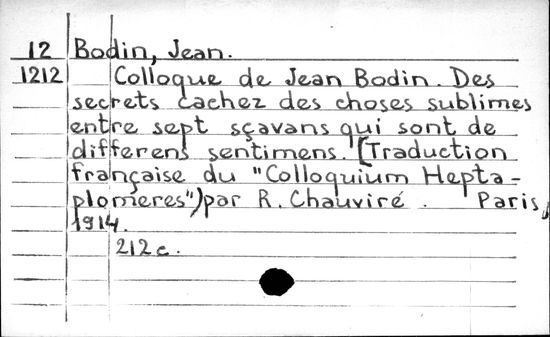 12 Bodin, Jean.
1212 Colloque de Jean Bodin. Des
secrets cachez des choses sublimes
entre sept sçavans qui sont de
differens sentimens. [Traduction
française du "Colloquium Hepta-
plomeres") par R. Chauviré. Paris,
1914.
212 c.